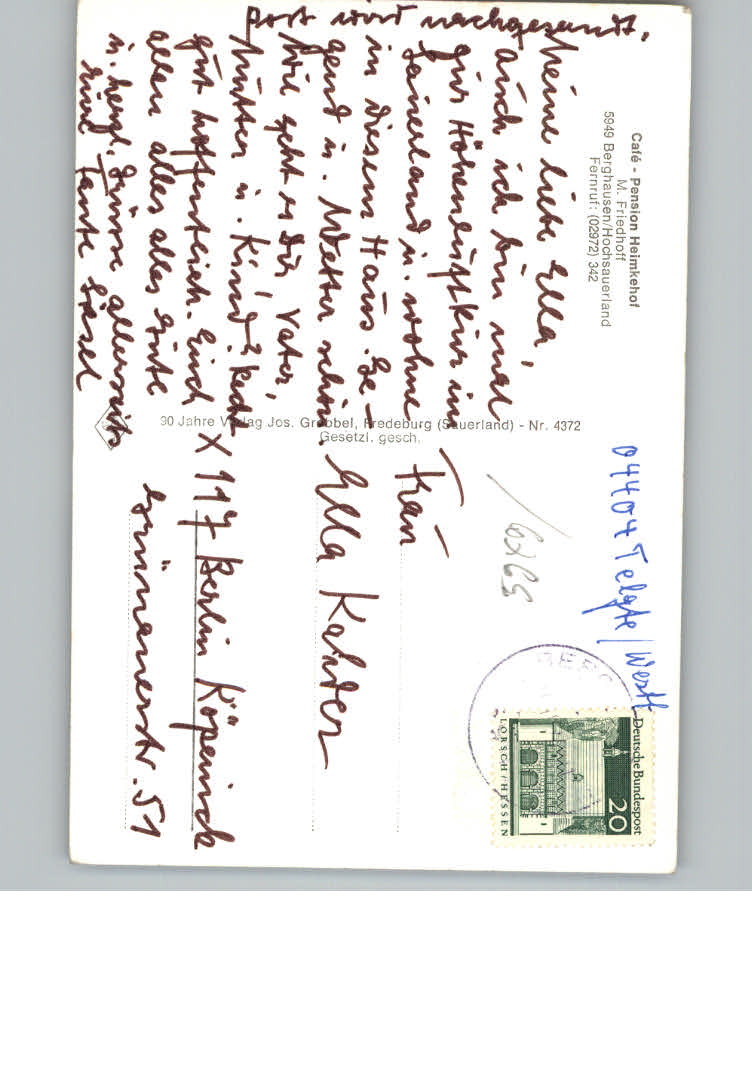 Post wird nachgesandt.
Café - Pension Heimkehof
M. Friedhoff
5949 Berghausen/Hochsauerland
Fernruf: (02972) 342
Meine liebe Ella,
auch ich bin mal
zur Höhenluftkur im
Sauerland u. wohne
in diesem Haus. Ge-
gend u. Wetter schön.
Wie geht es Dir, Vater,
Mutter u. Kind? Recht
gut hoffentlich. Euch
allen alles alles Gute
u. herzl. Grüsse allerseits
Eure Tante Liesel
90 Jahre Verlag Jos. Grobbel, Fredeburg (Sauerland) - Nr. 4372
Gesetzl. gesch.
04404 Telgte/Westf
Deutsche Bundespost
20
LORSCH / HESSEN
Frau
Ella Kahder
X 117 Berlin Köpenick
Grünauerstr. 51